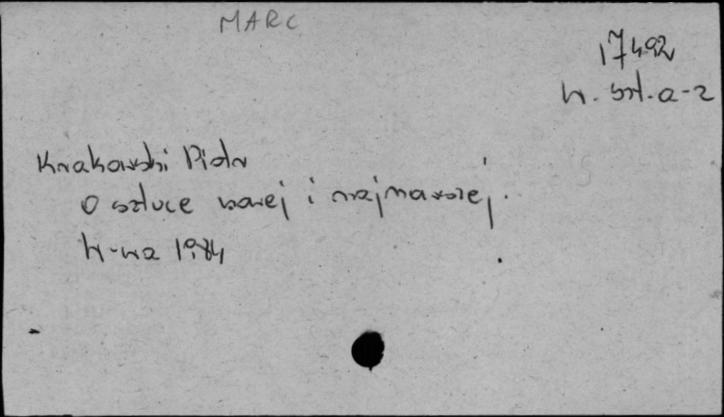 MARC
17492
H. szt. a-z
Krakowski Piotr
O sztuce nowej i najnowszej.
W-wa 1984